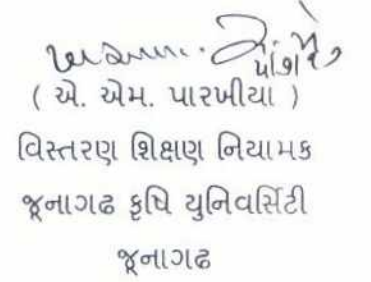 ( એ. એમ. પારખીયા )
વિસ્તરણ શિક્ષણ નિયામક
જૂનાગઢ કૃષિ યુનિવર્સિટી
જૂનાગઢ